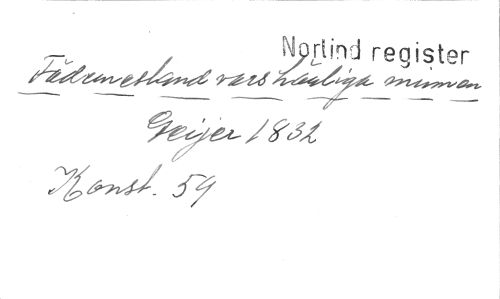 Norlind register
Fädernesland vars härliga minnen
Geijer 1832
Konst. 59